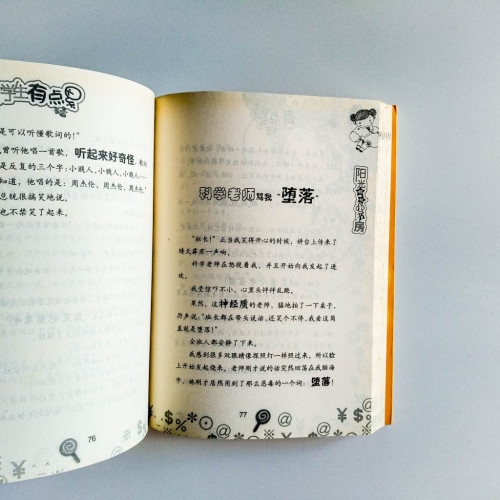 学生有点累
是可以听懂歌词的！”
曾听他唱一首歌，听起来好奇怪，歌词
是反复的三个字：小贱人，小贱人，小贱人……
知道，他唱的是：周杰伦，周杰伦，周杰伦。
总统很搞笑地说。
也不禁笑了起来。
76
阳光
房
科学老师骂我“堕落”
“班长！”正当我笑得开心的时候，讲台上传来了
晴天霹雳一声响，
科学老师在怒视着我，并且开始向我发起了进
攻。
我受惊吓不小，心里头怦怦乱跳。
果然，这神经质的老师，猛地拍了一下桌子，
厉声说：“班长都在带头说话，还笑个不停，我看这简
直就是堕落！”
全班人都安静了下来。
我感到很多双眼睛像探照灯一样照过来，所以脸
上开始发起烧来，老师刚才说的话突然回荡在我脑海
中，她刚才居然用到了那么恶毒的一个词：堕落！
77